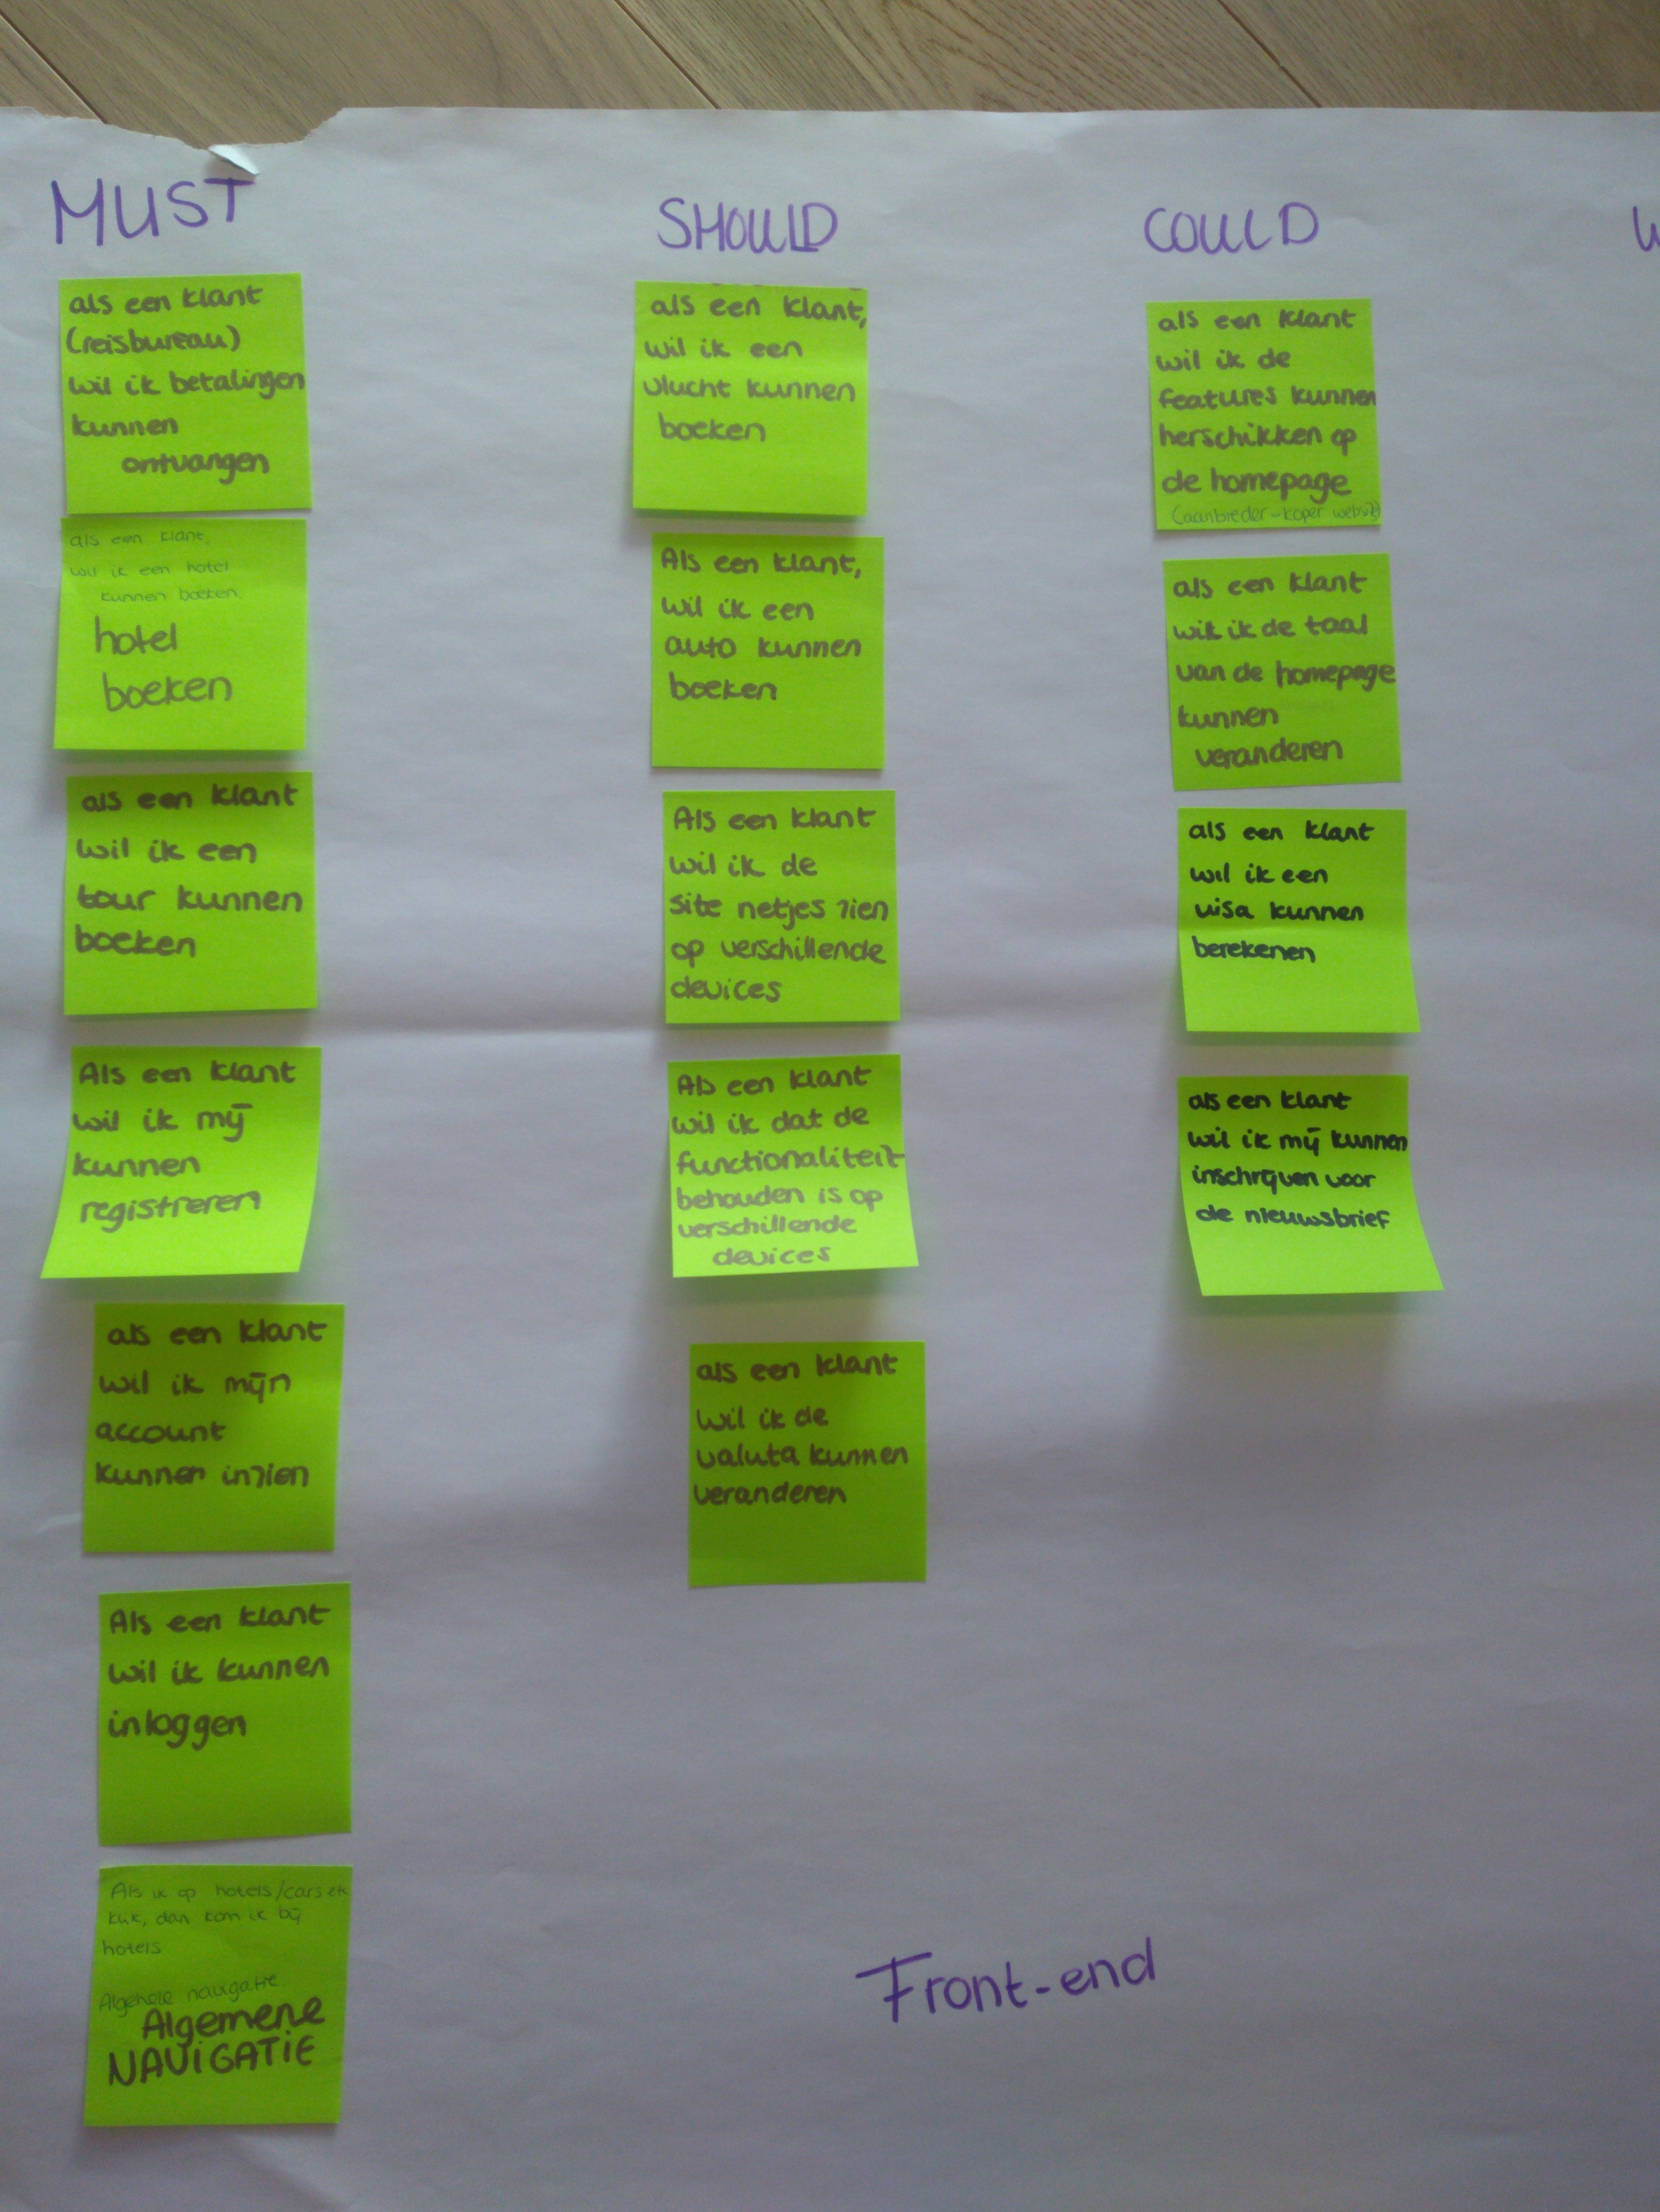 MUST
als een klant
(reisbureau)
wil ik betalingen
kunnen
ontvangen
als een klant,
wil ik een hotel
kunnen boeken.
hotel
boeken
als een klant
wil ik een
tour kunnen
boeken
Als een klant
wil ik mij
kunnen
registreren
als een klant
wil ik mijn
account
kunnen inzien
Als een klant
wil ik kunnen
inloggen
Als ik op hotels/cars etc
klik, dan kom ik bij
hotels
Algehele navigatie
Algemene
NAVIGATIE
SHOULD
als een klant,
wil ik een
vlucht kunnen
boeken
Als een klant,
wil ik een
auto kunnen
boeken
Als een klant
wil ik de
site netjes zien
op verschillende
devices
Als een klant
wil ik dat de
functionaliteit
behouden is op
verschillende
devices
als een klant
wil ik de
valuta kunnen
veranderen
COULD
als een klant
wil ik de
features kunnen
herschikken op
de homepage
(aanbieder-koper website)
als een klant
wil ik de taal
van de homepage
kunnen
veranderen
als een klant
wil ik een
visa kunnen
berekenen
als een klant
wil ik mij kunnen
inschrijven voor
de nieuwsbrief
W
Front-end